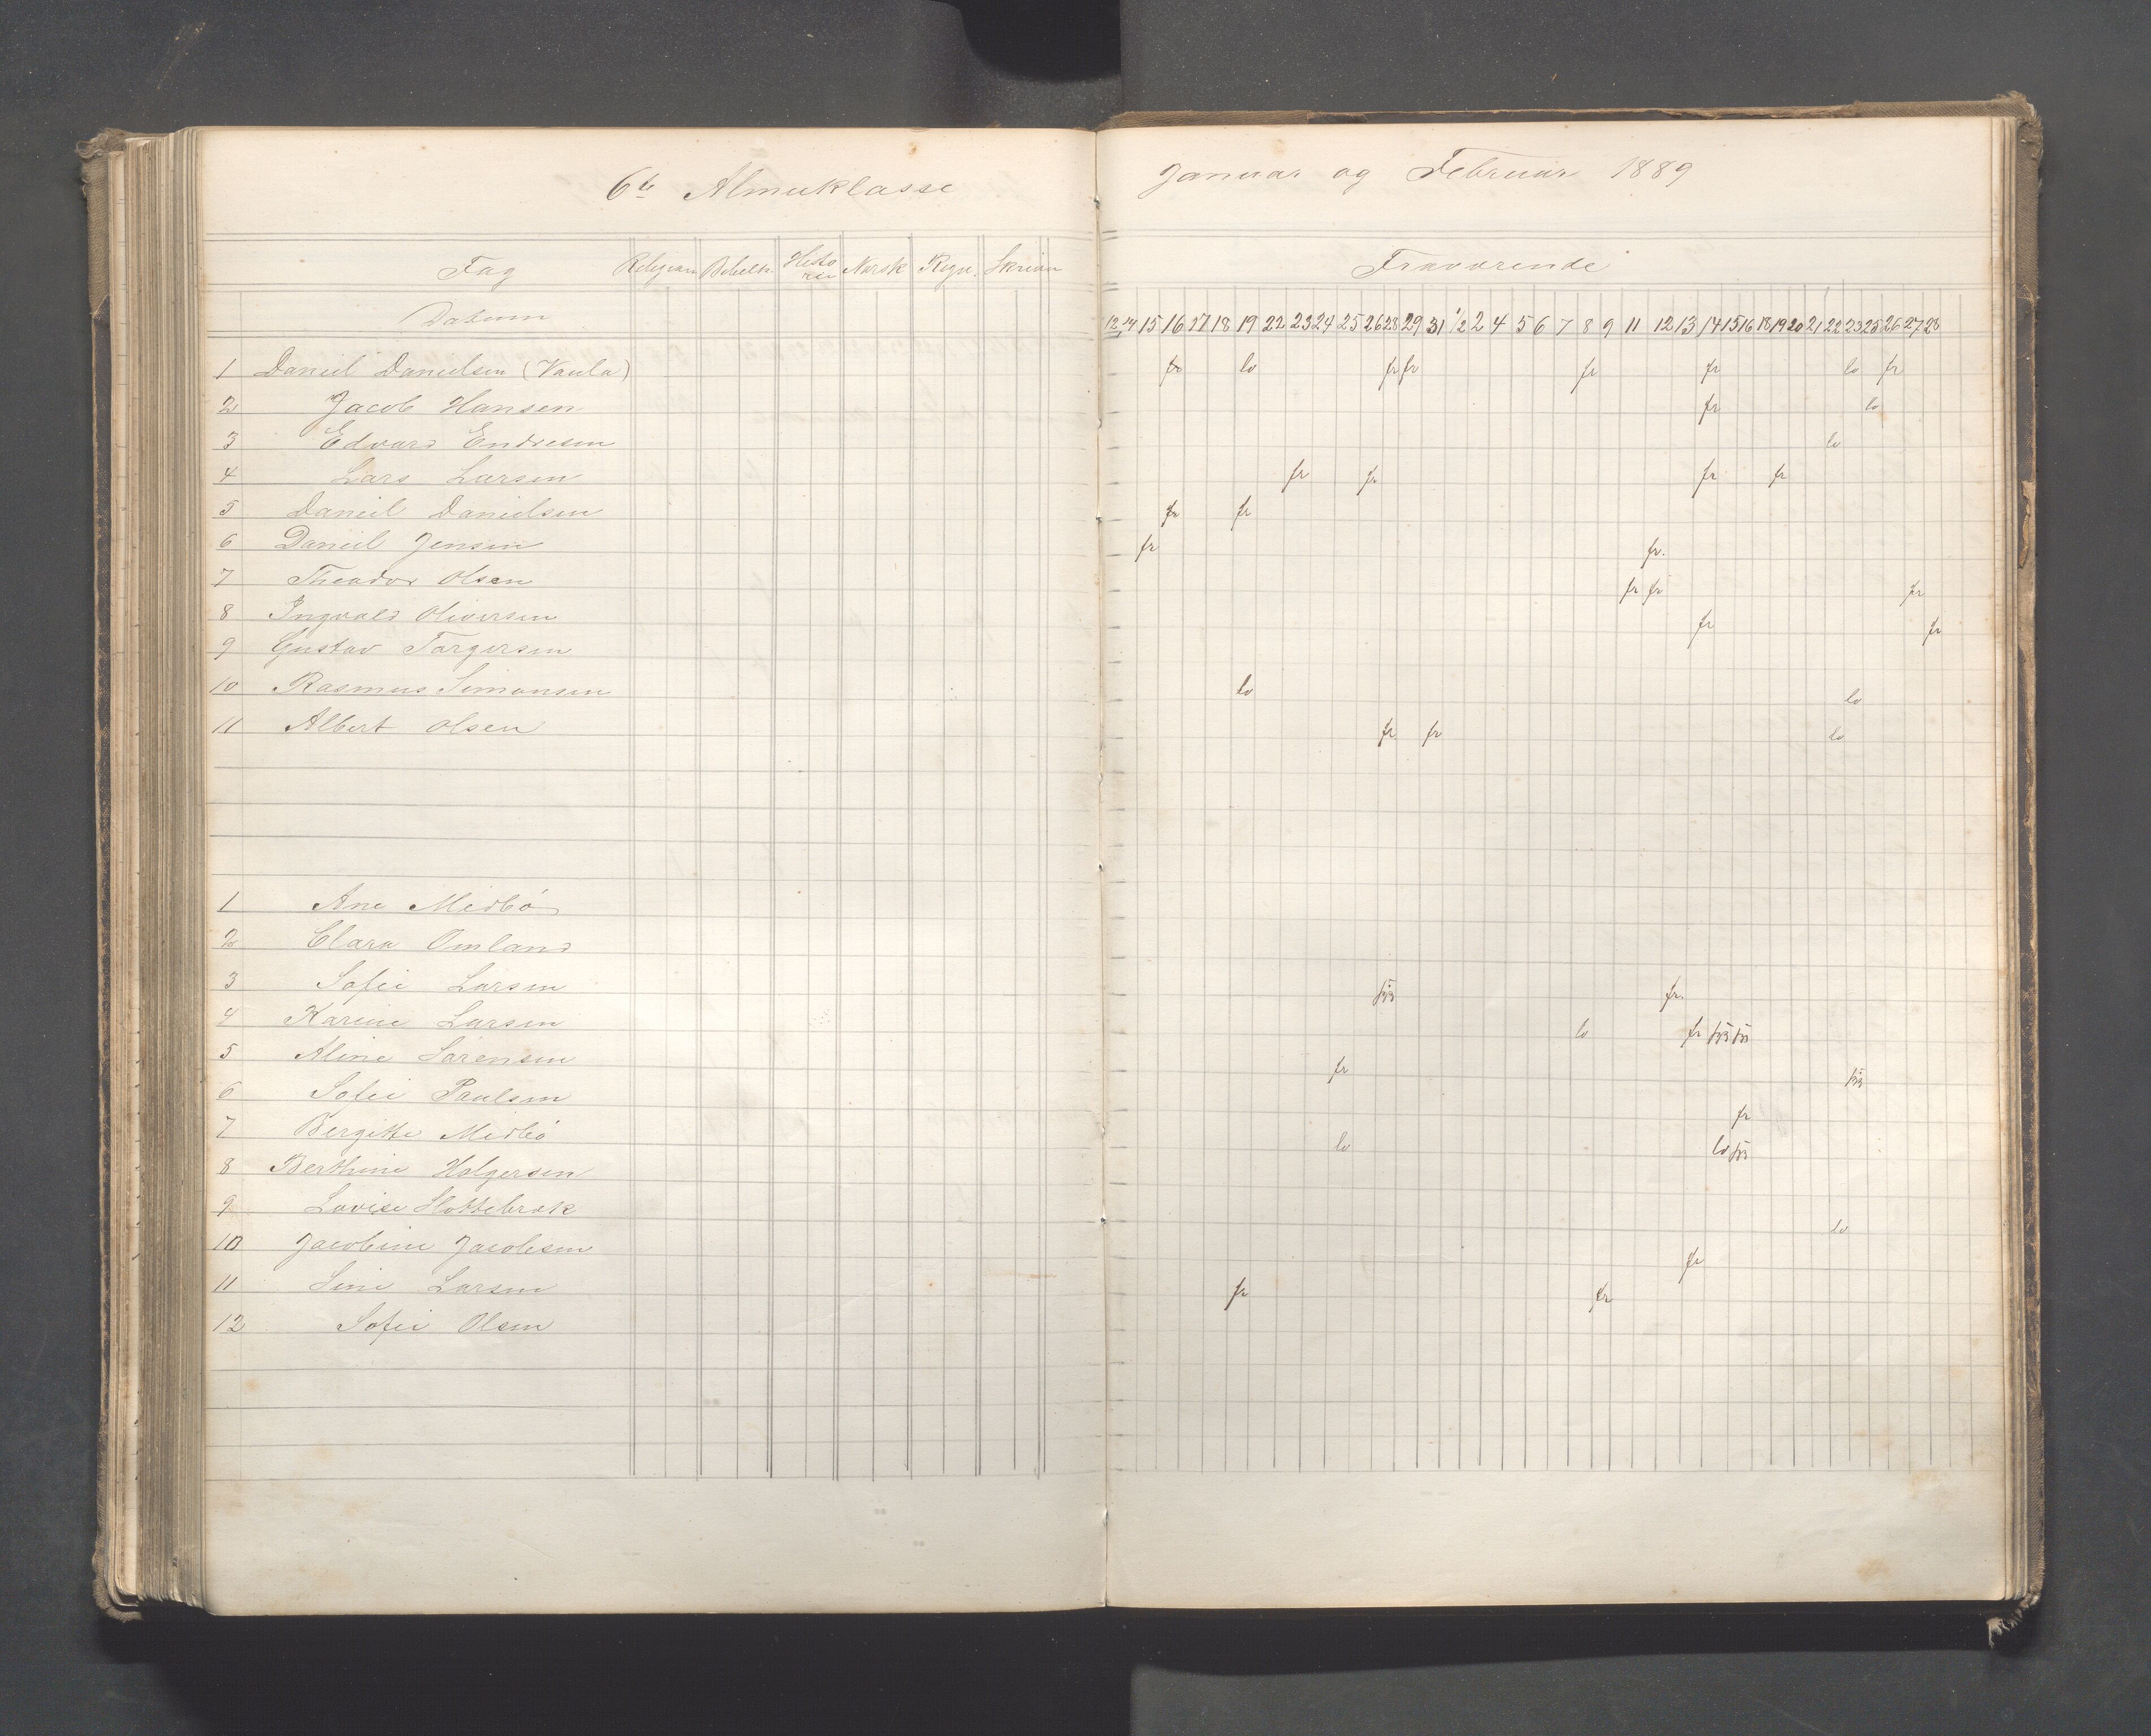 6te Almueklasse
Fag Religion Bibelh. Histo rie Norsk Regn. Skrivn
Datum
1 Daniel Danielsen (Vaula)
2 Jacob Hansen
3 Edvard Endresen
4 Lars Larsen
5 Daniel Danielsen
6 Daniel Jensen
7 Theodor Olsen
8 Ingvald Oliversen
9 Gustav Torgersen
10 Rasmus Simonsen
11 Albert Olsen
1 Ane Medbö
2 Clara Omland
3 Sofie Larsen
4 Karine Larsen
5 Aline Sörensen
6 Sofie Paulsen
7 Bergitte Medbö
8 Berthine Holgersen
9 Lovise Slottebrok
10 Jacobine Jacobsen
11 Sine Larsen
12 Sofie Olsen
Januar og Februar 1889
Fraværende
12 14 15 16 17 18 19 22 23 24 25 26 28 29 31 1/2 2 4 5 6 7 8 9 11 12 13 14 15 16 18 19 20 21 22 23 25 26 27 28
fr lo fr fr fr fr lo fr
fr lo
lo
fr fr fr fr
fr fr
fr fr.
fr fr fr
fr fr
lo lo
fr fr lo
fr.
lo fr
fr
fr
lo lo
lo
fr
fr fr